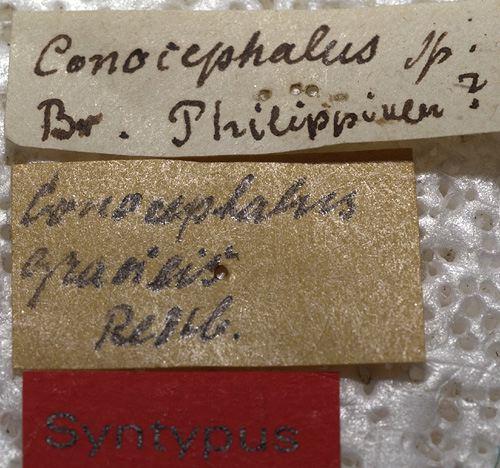 Conocephalus sp.
Br. Philippinen?
Conocephalus
gracilis
Redtb.
Syntypus